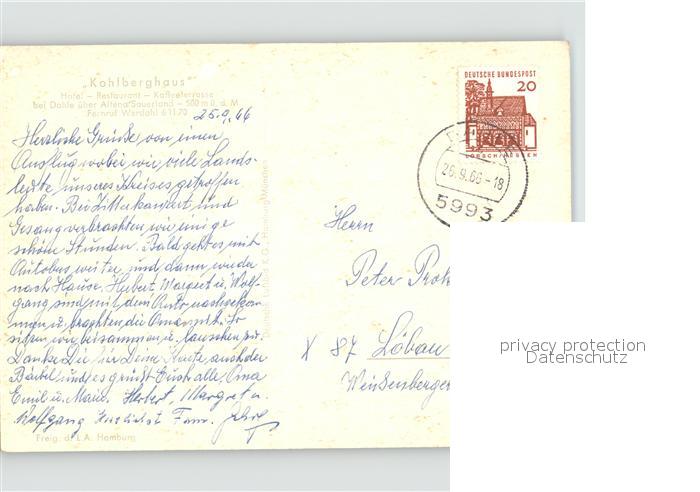 „Kohlberghaus"
Hotel – Restaurant – Kaffeeterrasse
bei Dahle über Altena/Sauerland – 500 m ü. d. M
Fernruf Werdohl 61170
25.9.66
Herzliche Grüße von einem
Ausflug wobei wir viele Lands-
leute unseres Kreises getroffen
haben. Bei Zitterkonzert und
Gesang verbrachten wir einige
schöne Stunden. Bald geht es mit
Autobus weiter und dann wieder
nach Hause. Herbert, Margret u. Wolf-
gang sind mit dem Auto nachgekom-
men u. brachten die Oma mit. So
sitzen wir beisammen u. lauschen zu.
Danke Dir für Deine Karte auch der
Bärbel und es grüßt Euch alle, Oma
Emil u. Marie. Herbert, Margret u.
Wolfgang Herzlichst Fam.
Freig. d. L.A. Hamburg
DEUTSCHE BUNDESPOST
20
LORSCH/HESSEN
26.9.66-18
5993
Herrn
Peter
X 87 Löbau
Weißenberger
privacy protection
Datenschutz